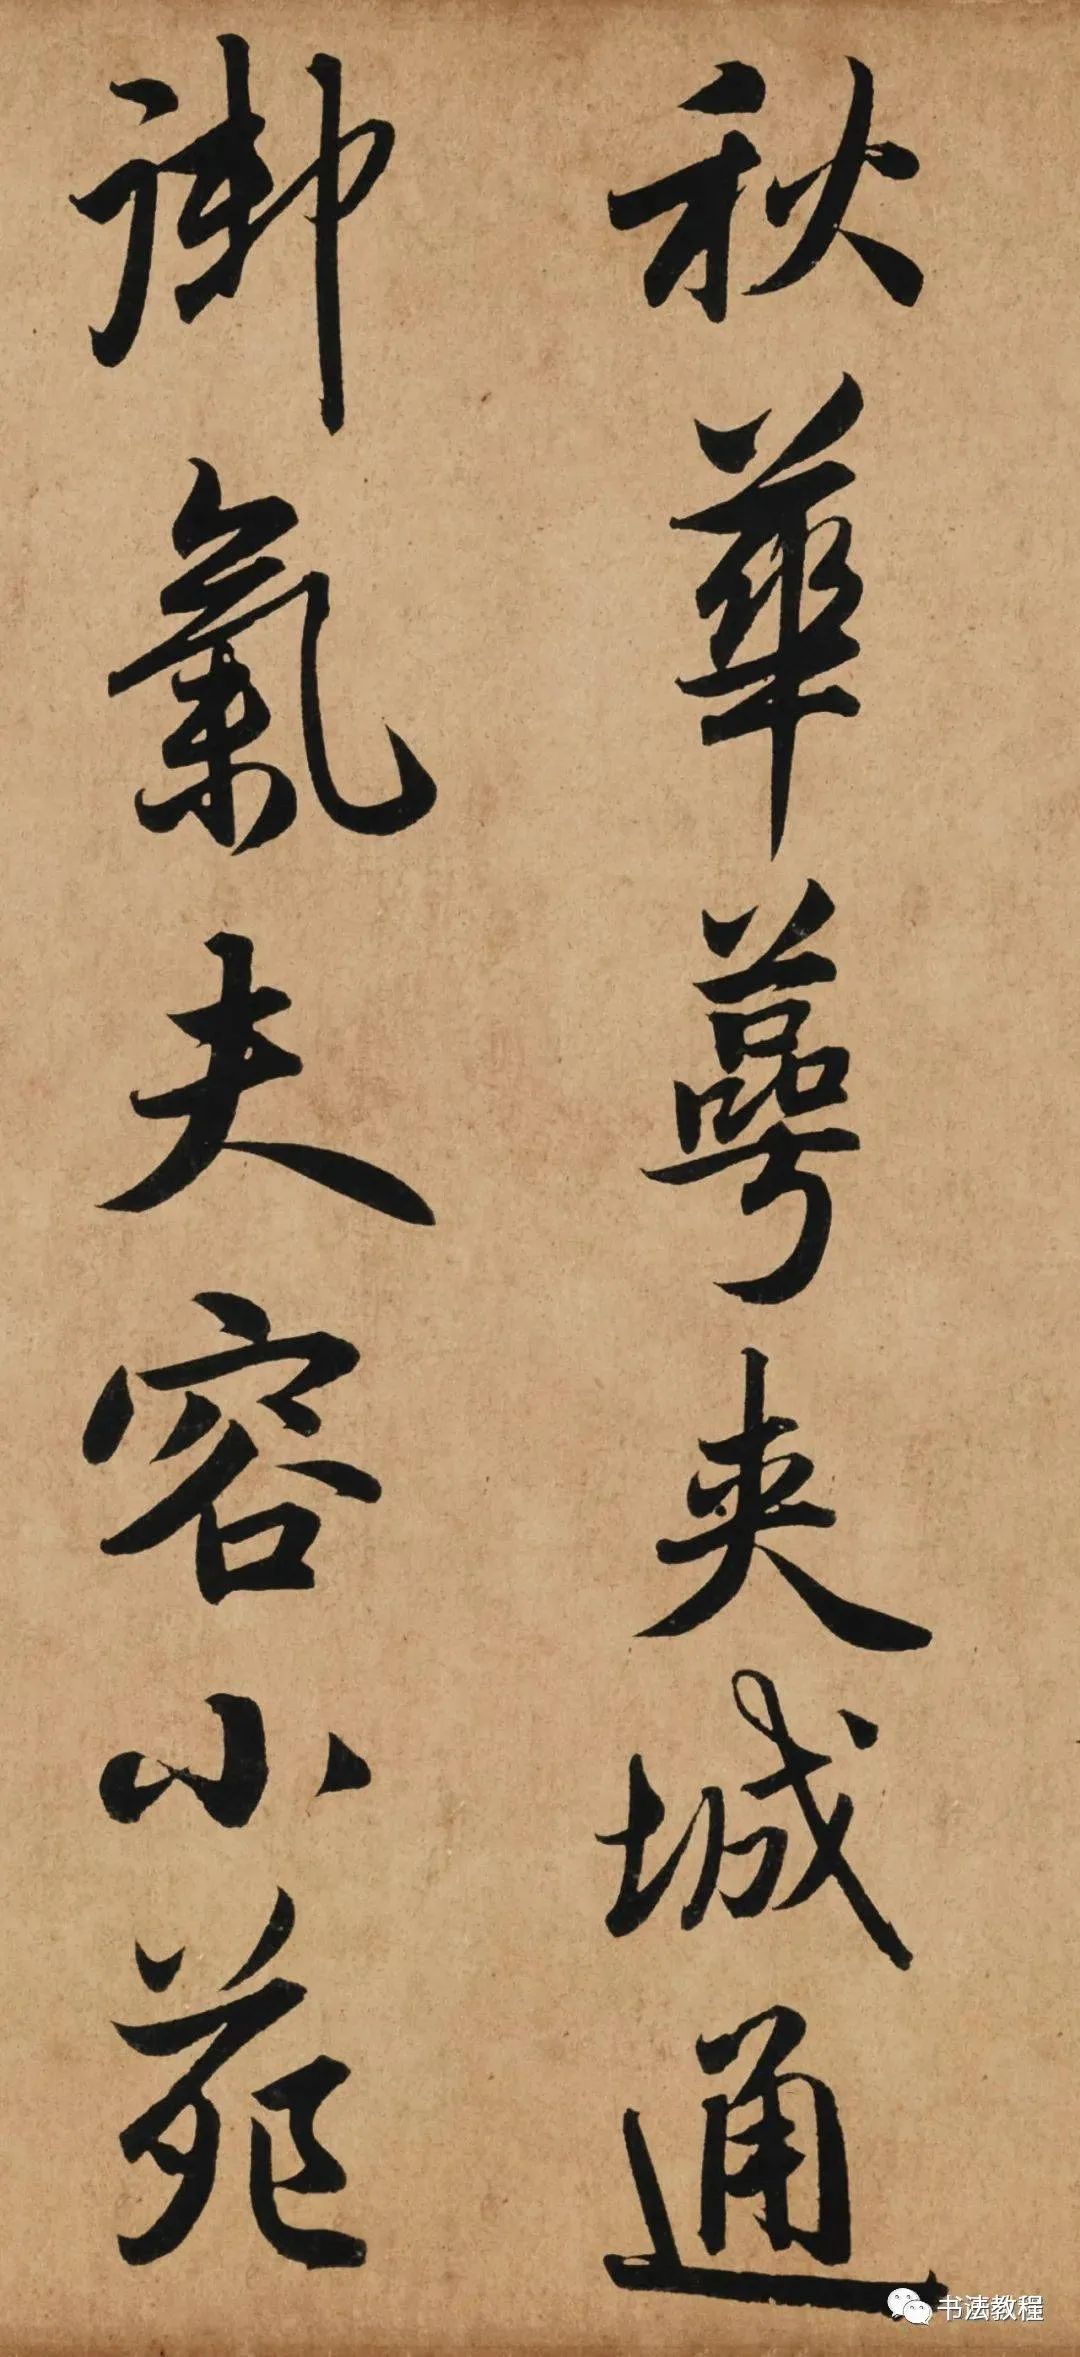 秋華萼夾城通
御氣夫容小苑
书法教程